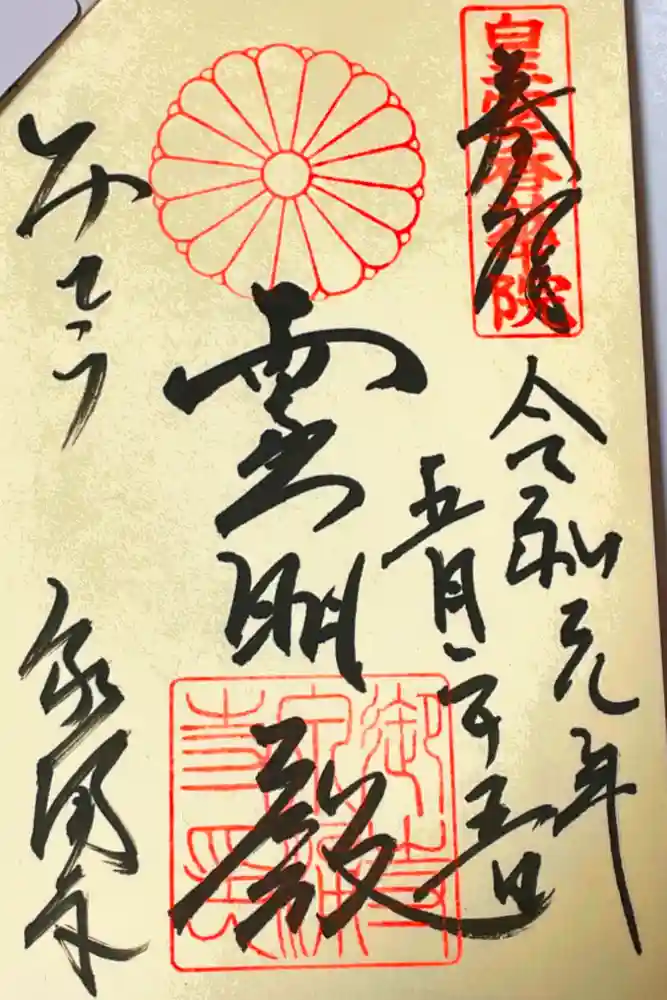 皇室香華院
奉拝
令和元年
五月二十五日
霊明殿
御寺
泉涌
寺印
みてら
泉涌寺